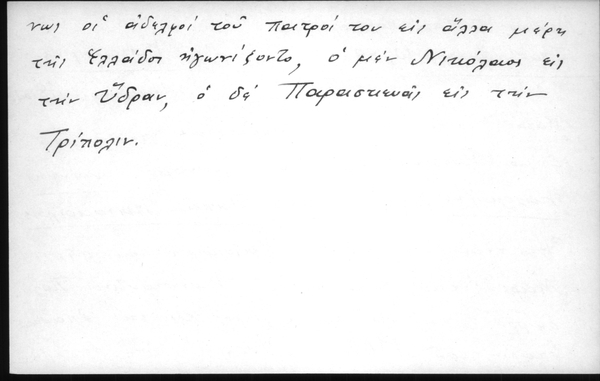 νως οἱ ἀδελφοί τοῦ πατρός του εἰς ἄλλα μέρη
τῆς Ἑλλάδος ἠγωνίζοντο, ὁ μέν Νικόλαος εἰς
τήν Ὕδραν, ὁ δέ Παρασκευᾶς εἰς τήν
Τρίπολιν.